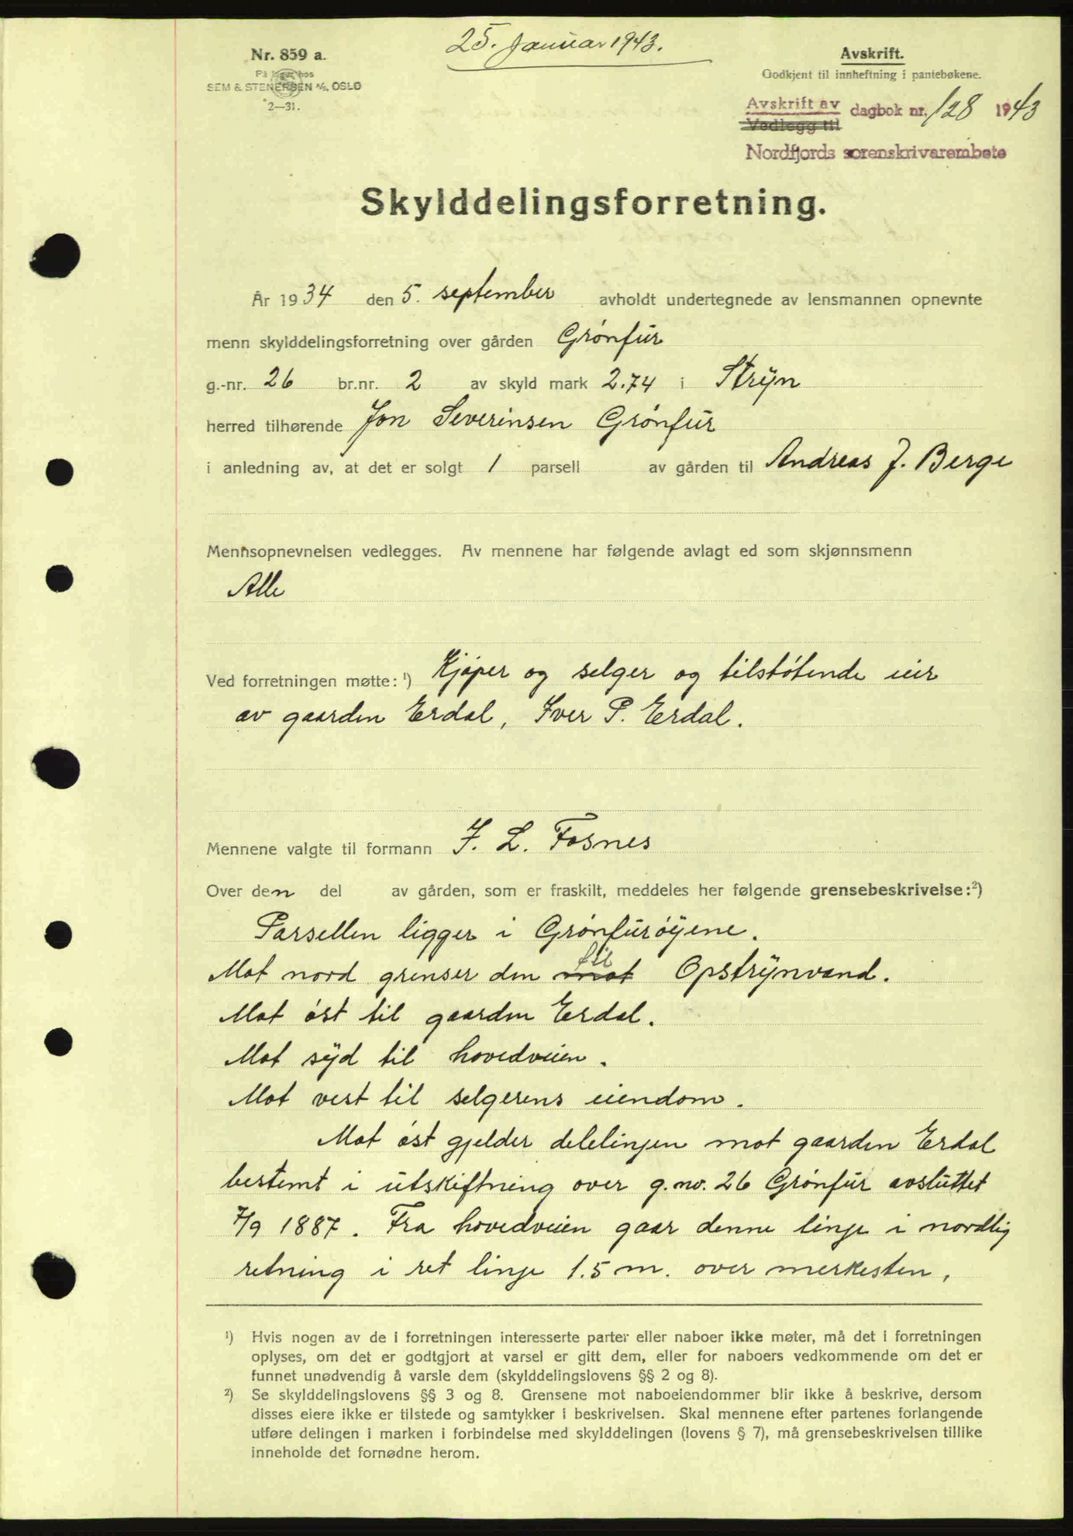 25. Januar 1943.
Nr. 859 a.
På lager hos
SEM & STENERSEN A/S, OSLO
2—31.
Avskrift.
Godkjent til innheftning i pantebøkene.
Avskrift av
Vedlegg til
dagbok nr. 128 1943
Nordfjords sorenskrivarembete
Skylddelingsforretning.
År 1934 den 5. september avholdt undertegnede av lensmannen opnevnte
menn skylddelingsforretning over gården Grønfur
g.-nr. 26 br.nr. 2 av skyld mark 2.74 i Stryn
herred tilhørende Jon Severinsen Grønfur
i anledning av, at det er solgt 1 parsell av gården til Andreas J. Berge
Mennsopnevnelsen vedlegges. Av mennene har følgende avlagt ed som skjønnsmenn
Alle
Ved forretningen møtte: ¹) Kjøper og selger og tilstøtende eier
av gaarden Erdal, Iver P. Erdal.
Mennene valgte til formann J. L. Fosnes
Over den del av gården, som er fraskilt, meddeles her følgende grensebeskrivelse: ²)
Parsellen ligger i Grønfurøyene.
Mot nord grenser den mot til Opstrynvand.
Mot øst til gaarden Erdal.
Mot syd til hovedveien.
Mot vest til selgerens eiendom.
Mot øst gjelder delelinjen mot gaarden Erdal
bestemt i utskiftning over g.no. 26 Grønfur avsluttet
7/9 1887. Fra hovedveien gaar denne linje i nordlig
retning i ret linje 1.5 m. over merkesten,
¹) Hvis nogen av de i forretningen interesserte parter eller naboer ikke møter, må det i forretningen
oplyses, om det er godtgjort at varsel er gitt dem, eller for naboers vedkommende om det er
funnet unødvendig å varsle dem (skylddelingslovens §§ 2 og 8).
²) Se skylddelingslovens §§ 3 og 8. Grensene mot naboeiendommer blir ikke å beskrive, dersom
disses eiere ikke er tilstede og samtykker i beskrivelsen. Skal mennene efter partenes forlangende
utføre delingen i marken i forbindelse med skylddelingen (lovens § 7), må grensebeskrivelsen tillike
inneholde det fornødne herom.